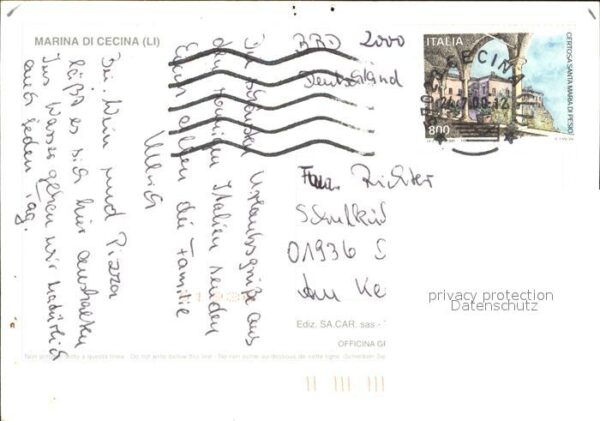 MARINA DI CECINA (LI)
BRD 2000
Deutschland
ITALIA
CERTOSA SANTA MARIA DI PESIO
800
CECINA
Die schönsten Urlaubsgrüße aus
dem sonnigen Italien senden
Euch allen die Familie
Ullrich
Bei Wein und Pizza
läßt es sich hier aushalten
Ins Wasser gehen wir natürlich
auch jeden Tag.
Fam. Richter
01936 S
Am Ke
privacy protection
Datenschutz
Ediz. SA.CAR. sas -
OFFICINA
Non scrivere sotto a questa linea - Do not write below this line - Ne rien écrire au dessous de cette ligne